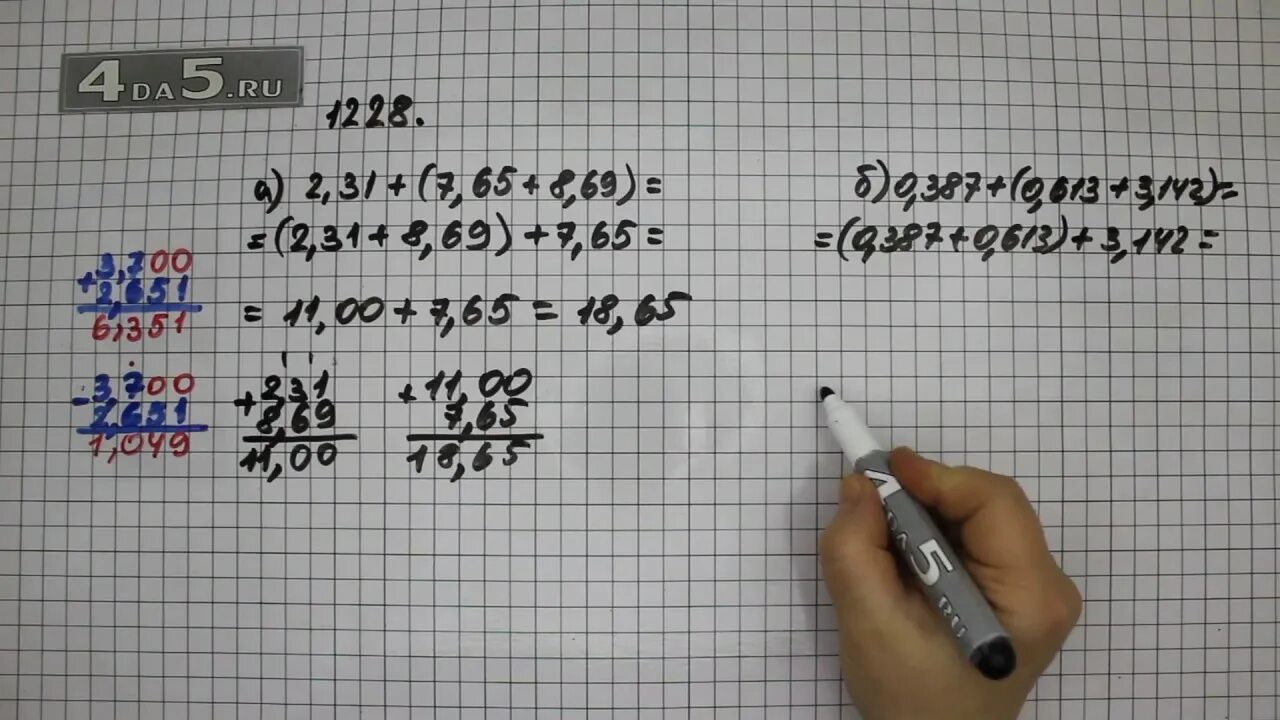 4DA5.RU
1228.
а) 2,31+(7,65+8,69)=
=(2,31+8,69)+7,65=
=11,00+7,65=18,65
б) 0,387+(0,613+3,142)=
=(0,387+0,613)+3,142=
+3,700
2,651
6,351
-3,700
2,651
1,049
+2,31
8,69
11,00
+11,00
7,65
18,65
4DA5.RU